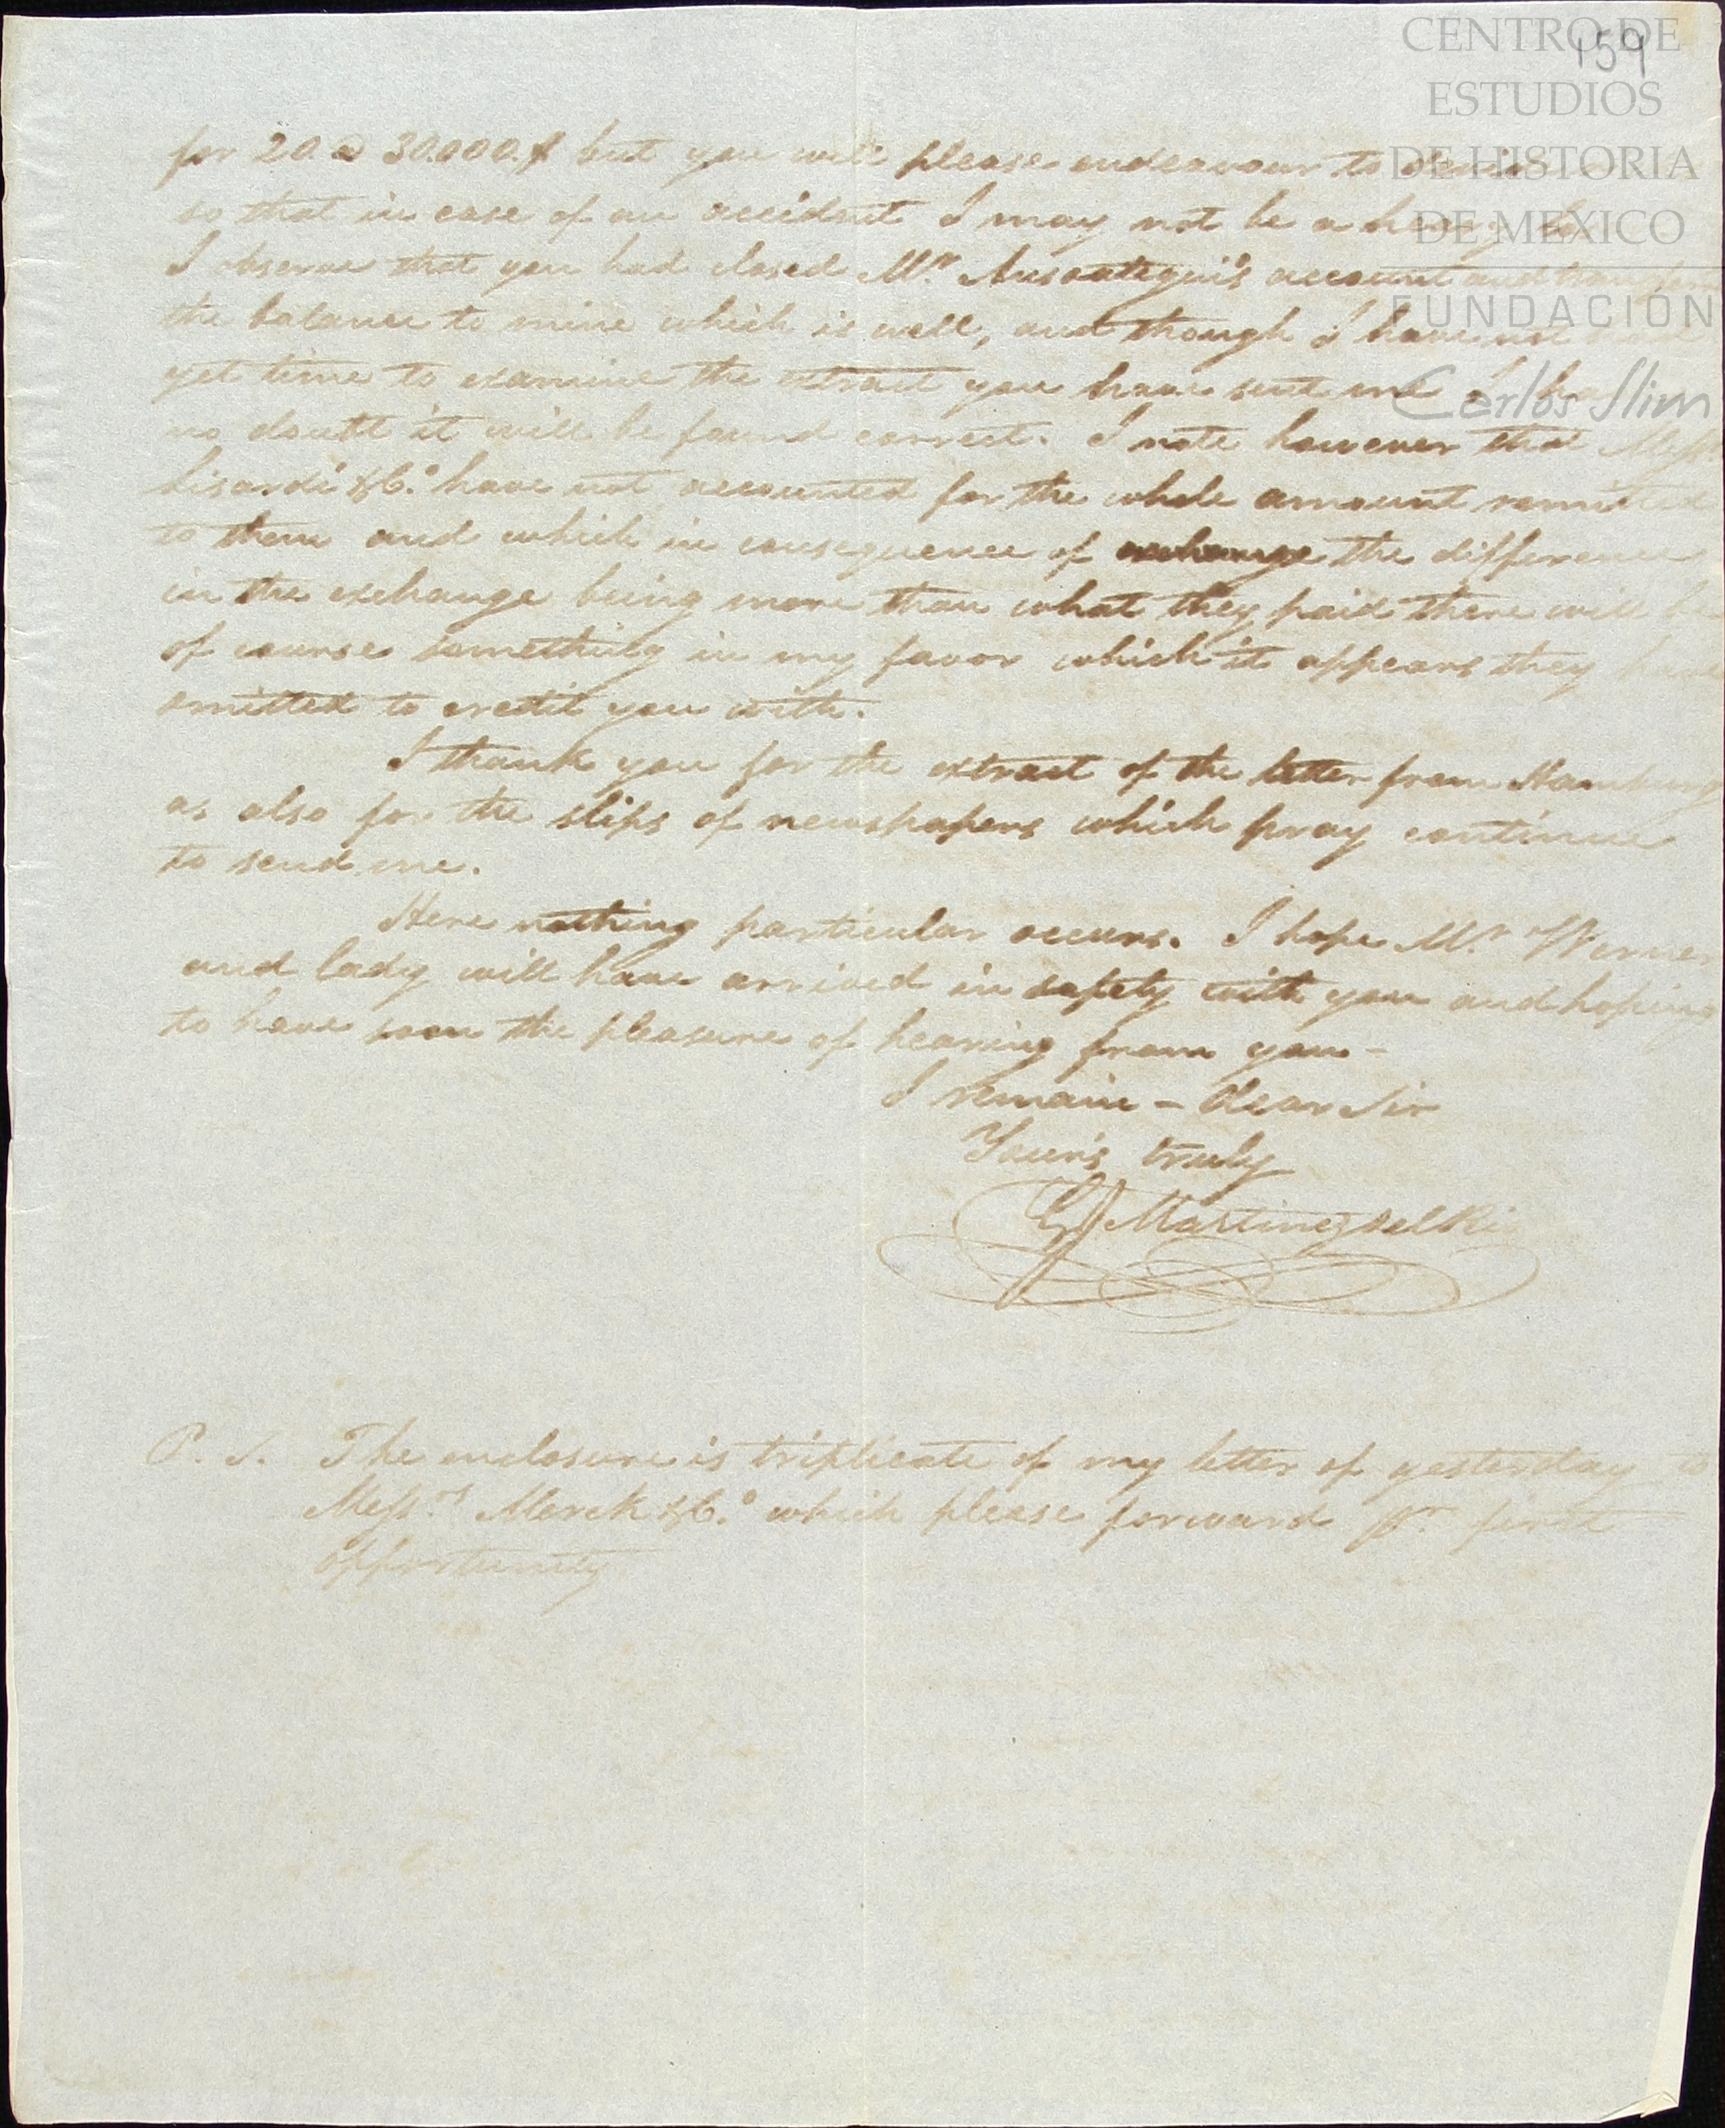 159
CENTRO DE
ESTUDIOS
DE HISTORIA
DE MEXICO
FUNDACIÓN
Carlos Slim
for 20. @ 30.000.$ but you will please endeavour to
so that in case of an accident I may not be a heavy
I observe that you had closed Mr. Ansoategui's account and
the balance to mine which is well, and though I have not
yet time to examine the extract you have sent me I
no doubt it will be found correct. I note however that Messrs
Lisardi &Co. have not accounted for the whole amount remitted
to them and which in consequence of exchange the difference
in the exchange being more than what they paid there will be
of course something in my favor which it appears they have
omitted to credit you with.
I thank you for the extract of the letter from Hamburg
as also for the slips of newspapers which pray continue
to send me.
Here nothing particular occurs. I hope Mr. Werner
and lady will have arrived in safety with you and hoping
to have soon the pleasure of hearing from you -
I remain - Dear Sir
Your's truly
G Martinez del Rio
P. S. The enclosure is triplicate of my letter of yesterday to
Messrs. Merck &Co. which please forward pr. first
opportunity